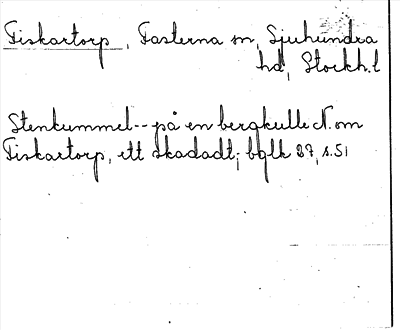 Fiskartorp, Fasterna sn, Sjuhundra
hd, Stockh.l
Stenkummel -- på en bergkulle N. om
Fiskartorp, ett skadadt; bglk 27, s.51